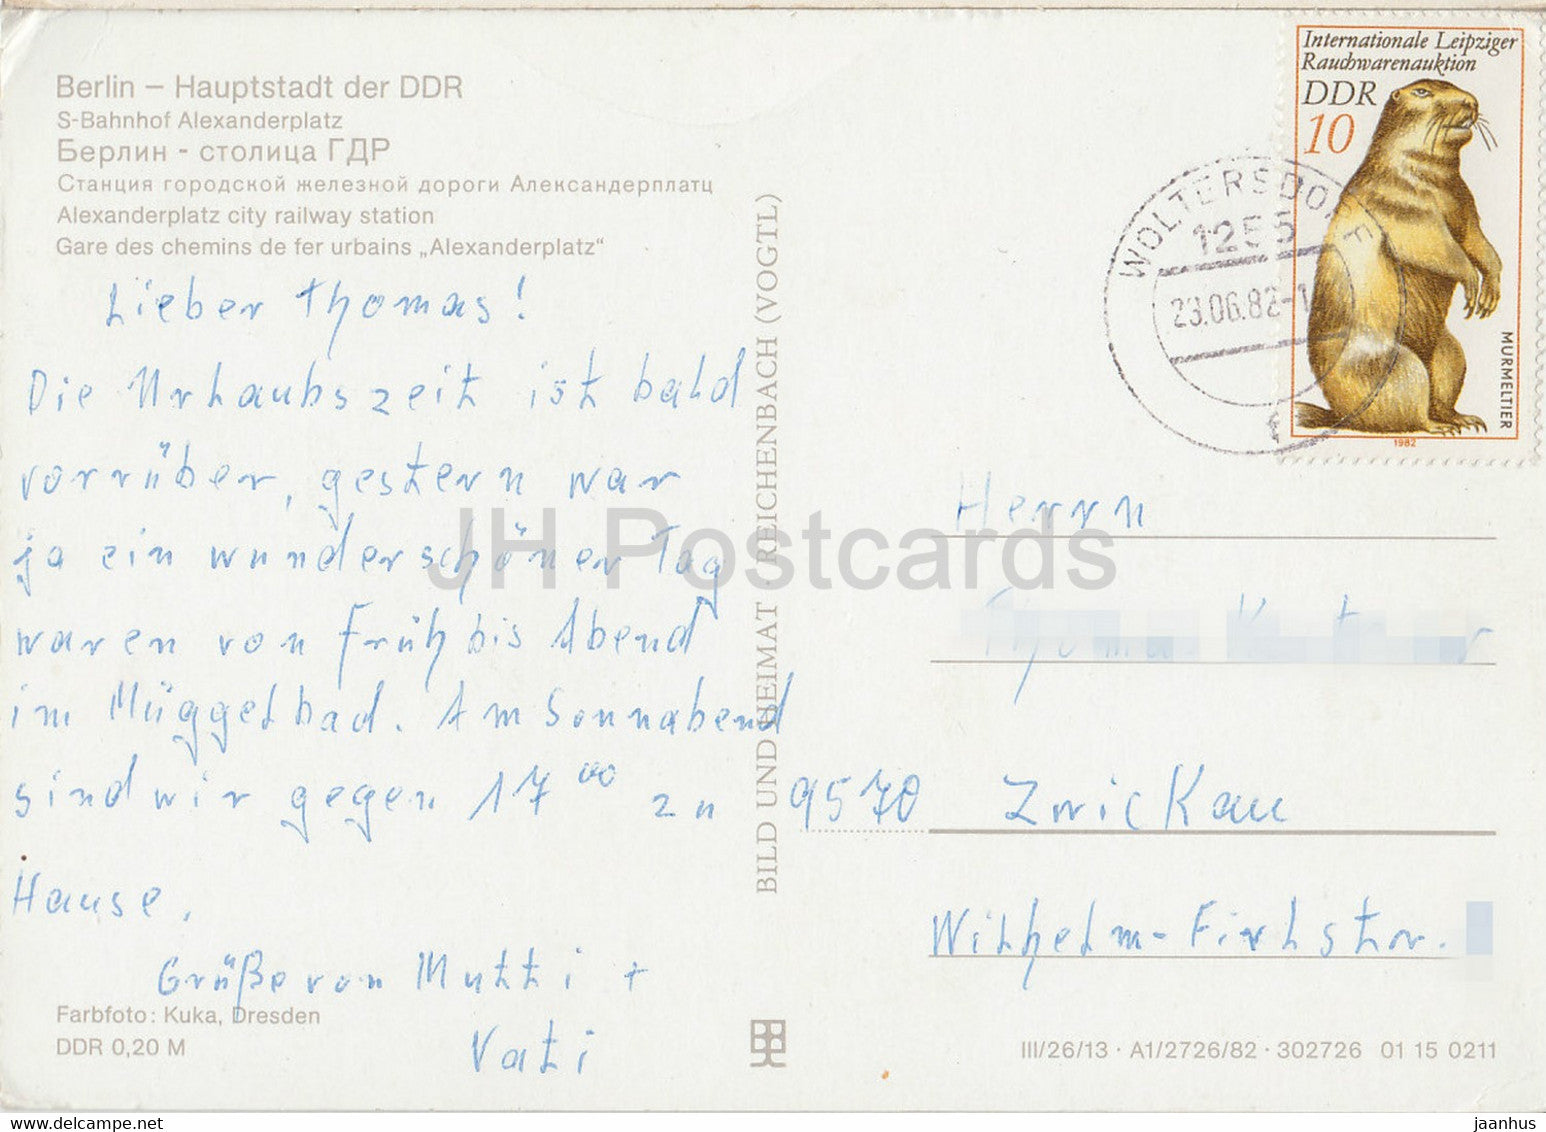 Berlin – Hauptstadt der DDR
S-Bahnhof Alexanderplatz
Берлин - столица ГДР
Станция городской железной дороги Александерплатц
Alexanderplatz city railway station
Gare des chemins de fer urbains „Alexanderplatz“
Lieber Thomas!
Die Urlaubszeit ist bald
vorrüber, gestern war
ja ein wunderschöner Tag
waren von Früh bis Abend
im Müggelbad. Am Sonnabend
sind wir gegen 17⁰⁰ zu
Hause.
Grüße von Mutti +
Vati
Farbfoto: Kuka, Dresden
DDR 0,20 M
BILD UND HEIMAT · REICHENBACH (VOGTL)
Internationale Leipziger
Rauchwarenauktion
DDR
10
MURMELTIER
1982
WOLTERSDORF
1255
23.06.82-1
Herrn
9570 Zwickau
Wilhelm-Firlstr.
III/26/13 · A1/2726/82 · 302726 01 15 0211
JH Postcards
jaanhus